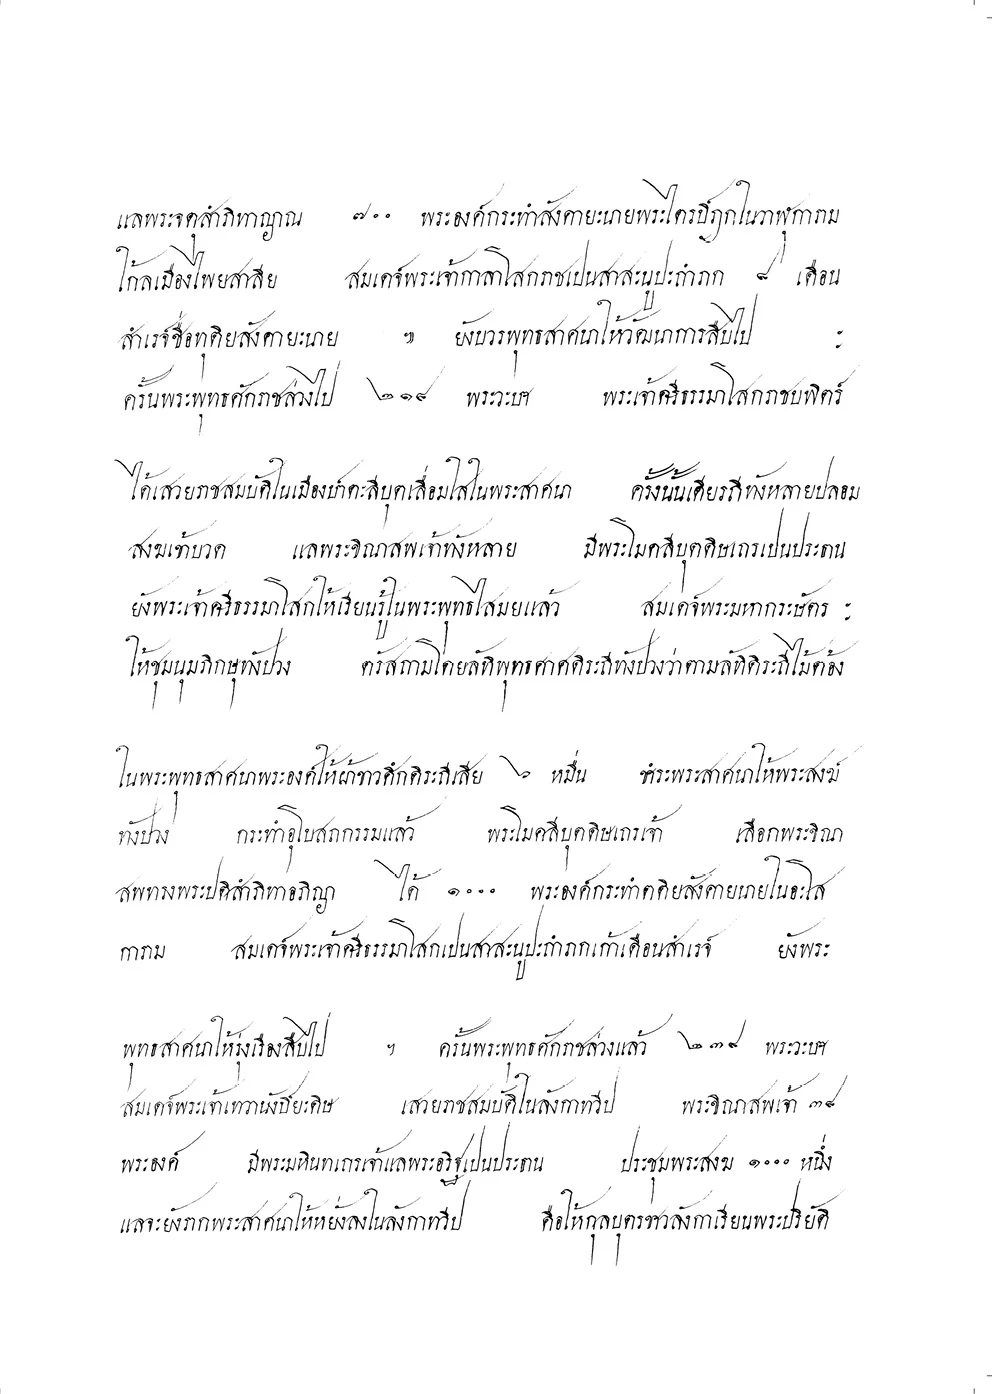 แลพระจตุสำภิทาญาณ ๗๐๐ พระองค์กระทำสังคายะนายพระไตรปิฎกในวาฬุการาม
ใก้ลเมืองไพยสาลีย สมเดจ์พระเจ้ากาลาโสกราชเปนสาสะนูปะถำภก ๘ เดือน
สำเรจ์ชื่อทุติยสังคายะนาย ๚ ยังบวรพุทธสาศนาให้วัฒนาการสืบไป ฯ
ครั้นพระพุทธศักราชล่วงไป ๒๑๘ พระวะษา พระเจ้าศรีธรรมาโสกราชบพิตร์
ได้เสวยราชสมบัติในเมืองปาตะลีบุตเลื่อมใสในพระสาศนา ครั้งนั้นเดียรถีทังหลายปลอม
สงฆเข้าบวด แลพระขิณาสพเจ้าทังหลาย มีพระโมคลีบุตดิษเถรเปนประธาน
ยังพระเจ้าศรีธรรมาโสกให้เรียนรู้ในพระพุทธไสมยแล้ว สมเดจ์พระมหากระษัตร ฯ
ให้ชุมนุมภิกษุทังปวง ตรัสถามโดยลัทิพุทธสาศดิระถีทังปวงว่าตามลัทิดิระถีไม้ต้อง
ในพระพุทธสาศนาพระองค์ให้ผ้าขาวศึกดิระถีเสีย ๖ หมื่น ชำระพระสาศนาให้พระสงฆ์
ทังปวง กระทำอุโบสถกรรมแล้ว พระโมคลีบุตดิษเถรเจ้า เลือกพระขิณา
สพทางพระปติสำภิทาอภิญา ได้ ๑๐๐๐ พระองค์กระทำตติยสังคายนายในอะโส
การาม สมเดจ์พระเจ้าศรีธรรมาโสกเปนสาสะนูปะถำภกเก้าเดือนสำเรจ์ ยังพระ
พุทธสาศนาให้รุ่งเรืองสืบไป ฯ ครั้นพระพุทธศักราชล่วงแล้ว ๒๓๘ พระวะษา
สมเดจ์พระเจ้าเทวานังปิยะดิษ เสวยราชสมบัติในลังกาทวีป พระขิณาสพเจ้า ๓๘
พระองค์ มีพระมหินทเถรเจ้าแลพระอริฐเปนประธาน ประชุมพระสงฆ ๑๐๐๐ หนึ่ง
แลจะยังรากพระสาศนาให้หยั่งลงในลังกาทวีป คือให้กุลบุตรชาวลังกาเรียนพระปริยัติ